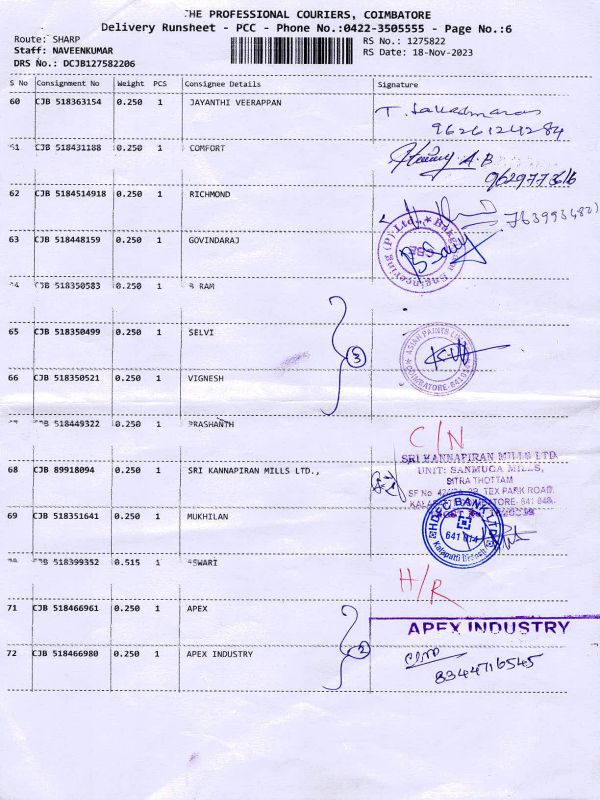 THE PROFESSIONAL COURIERS, COIMBATORE
Delivery Runsheet - PCC - Phone No.:0422-3505555 - Page No.:6
Route: SHARP
RS No.: 1275822
Staff: NAVEENKUMAR
RS Date: 18-Nov-2023
DRS No.: DCJB127582206
S No Consignment No Weight PCS Consignee Details Signature
60 CJB 518363154 0.250 1 JAYANTHI VEERAPPAN
9626124284
61 CJB 518431188 0.250 1 COMFORT
A.B
9629773616
62 CJB 5184514918 0.250 1 RICHMOND
63 CJB 518448159 0.250 1 GOVINDARAJ
(P) Ltd.
CJB 518350583 0.250 1 RAM
65 CJB 518350499 0.250 1 SELVI
3
ASIAN PAINTS
COIMBATORE
66 CJB 518350521 0.250 1 VIGNESH
CJB 518449322 0.250 1 PRASHANTH
C/N
68 CJB 89918094 0.250 1 SRI KANNAPIRAN MILLS LTD.,
SRI KANNAPIRAN MILLS LTD.
UNIT: SANMUGA MILLS,
SITRA THOTTAM
TEX PARK ROAD,
69 CJB 518351641 0.250 1 MUKHILAN
HDFC BANK LTD
641 014
Kalapatti Branch
CJB 518399352 0.515 1 ESWARI
H/R
71 CJB 518466961 0.250 1 APEX
APEX INDUSTRY
2
72 CJB 518466980 0.250 1 APEX INDUSTRY
8344716545